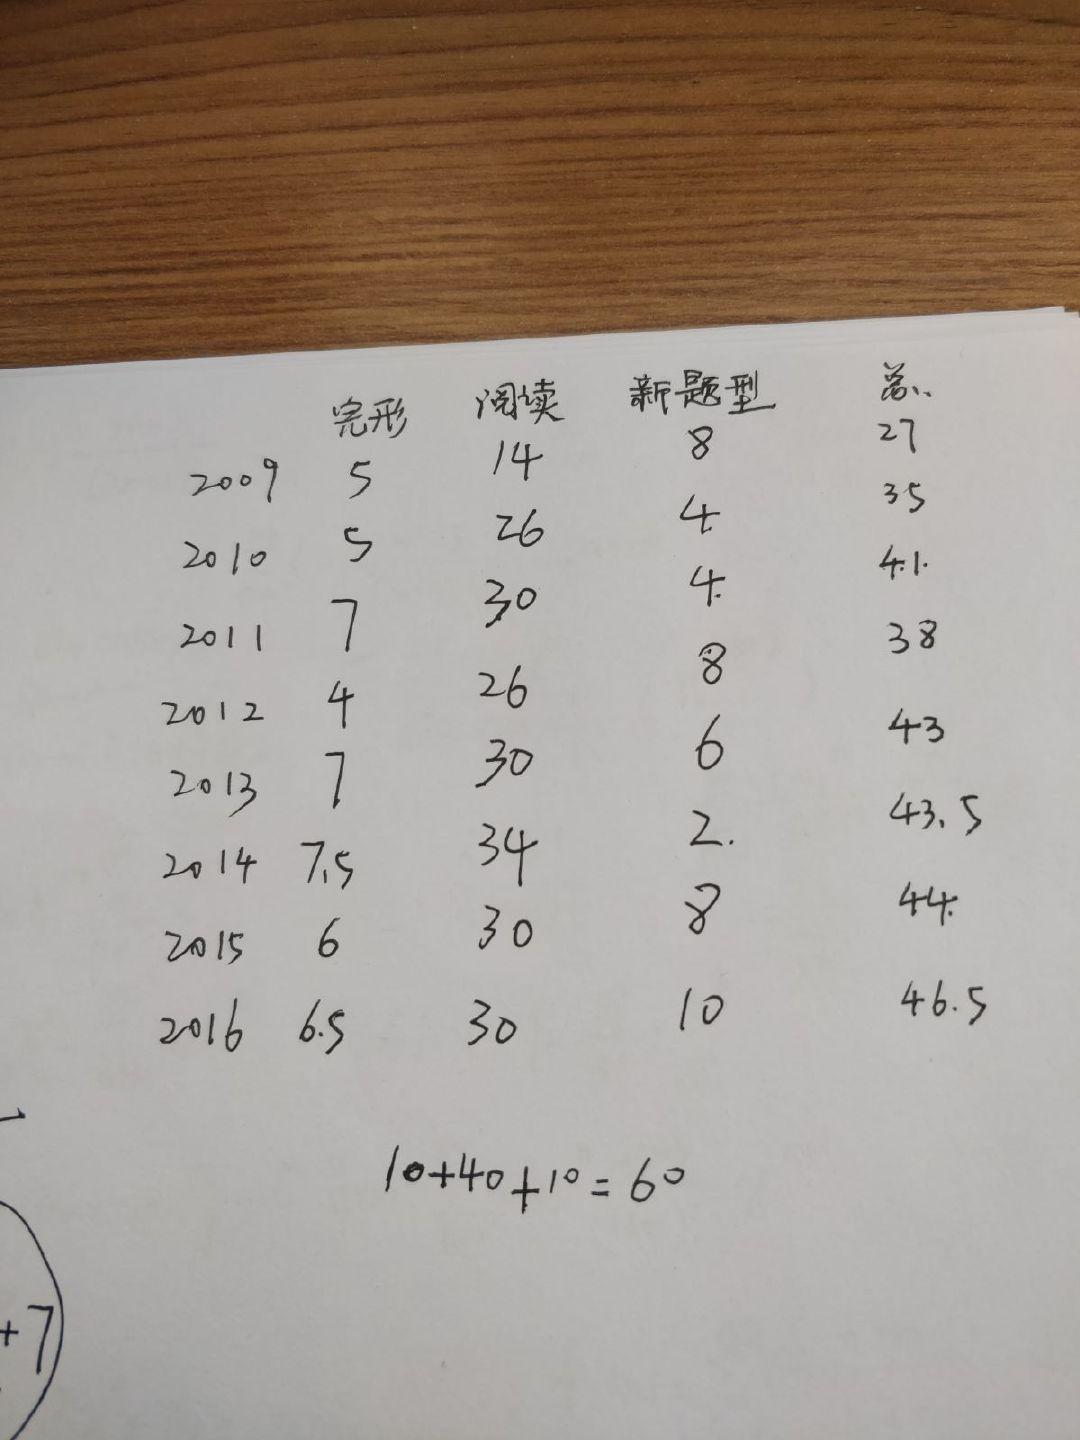 完形 阅读 新题型 总
2009 5 14 8 27
2010 5 26 4 35
2011 7 30 4 41
2012 4 26 8 38
2013 7 30 6 43
2014 7.5 34 2 43.5
2015 6 30 8 44
2016 6.5 30 10 46.5
10+40+10=60
+7